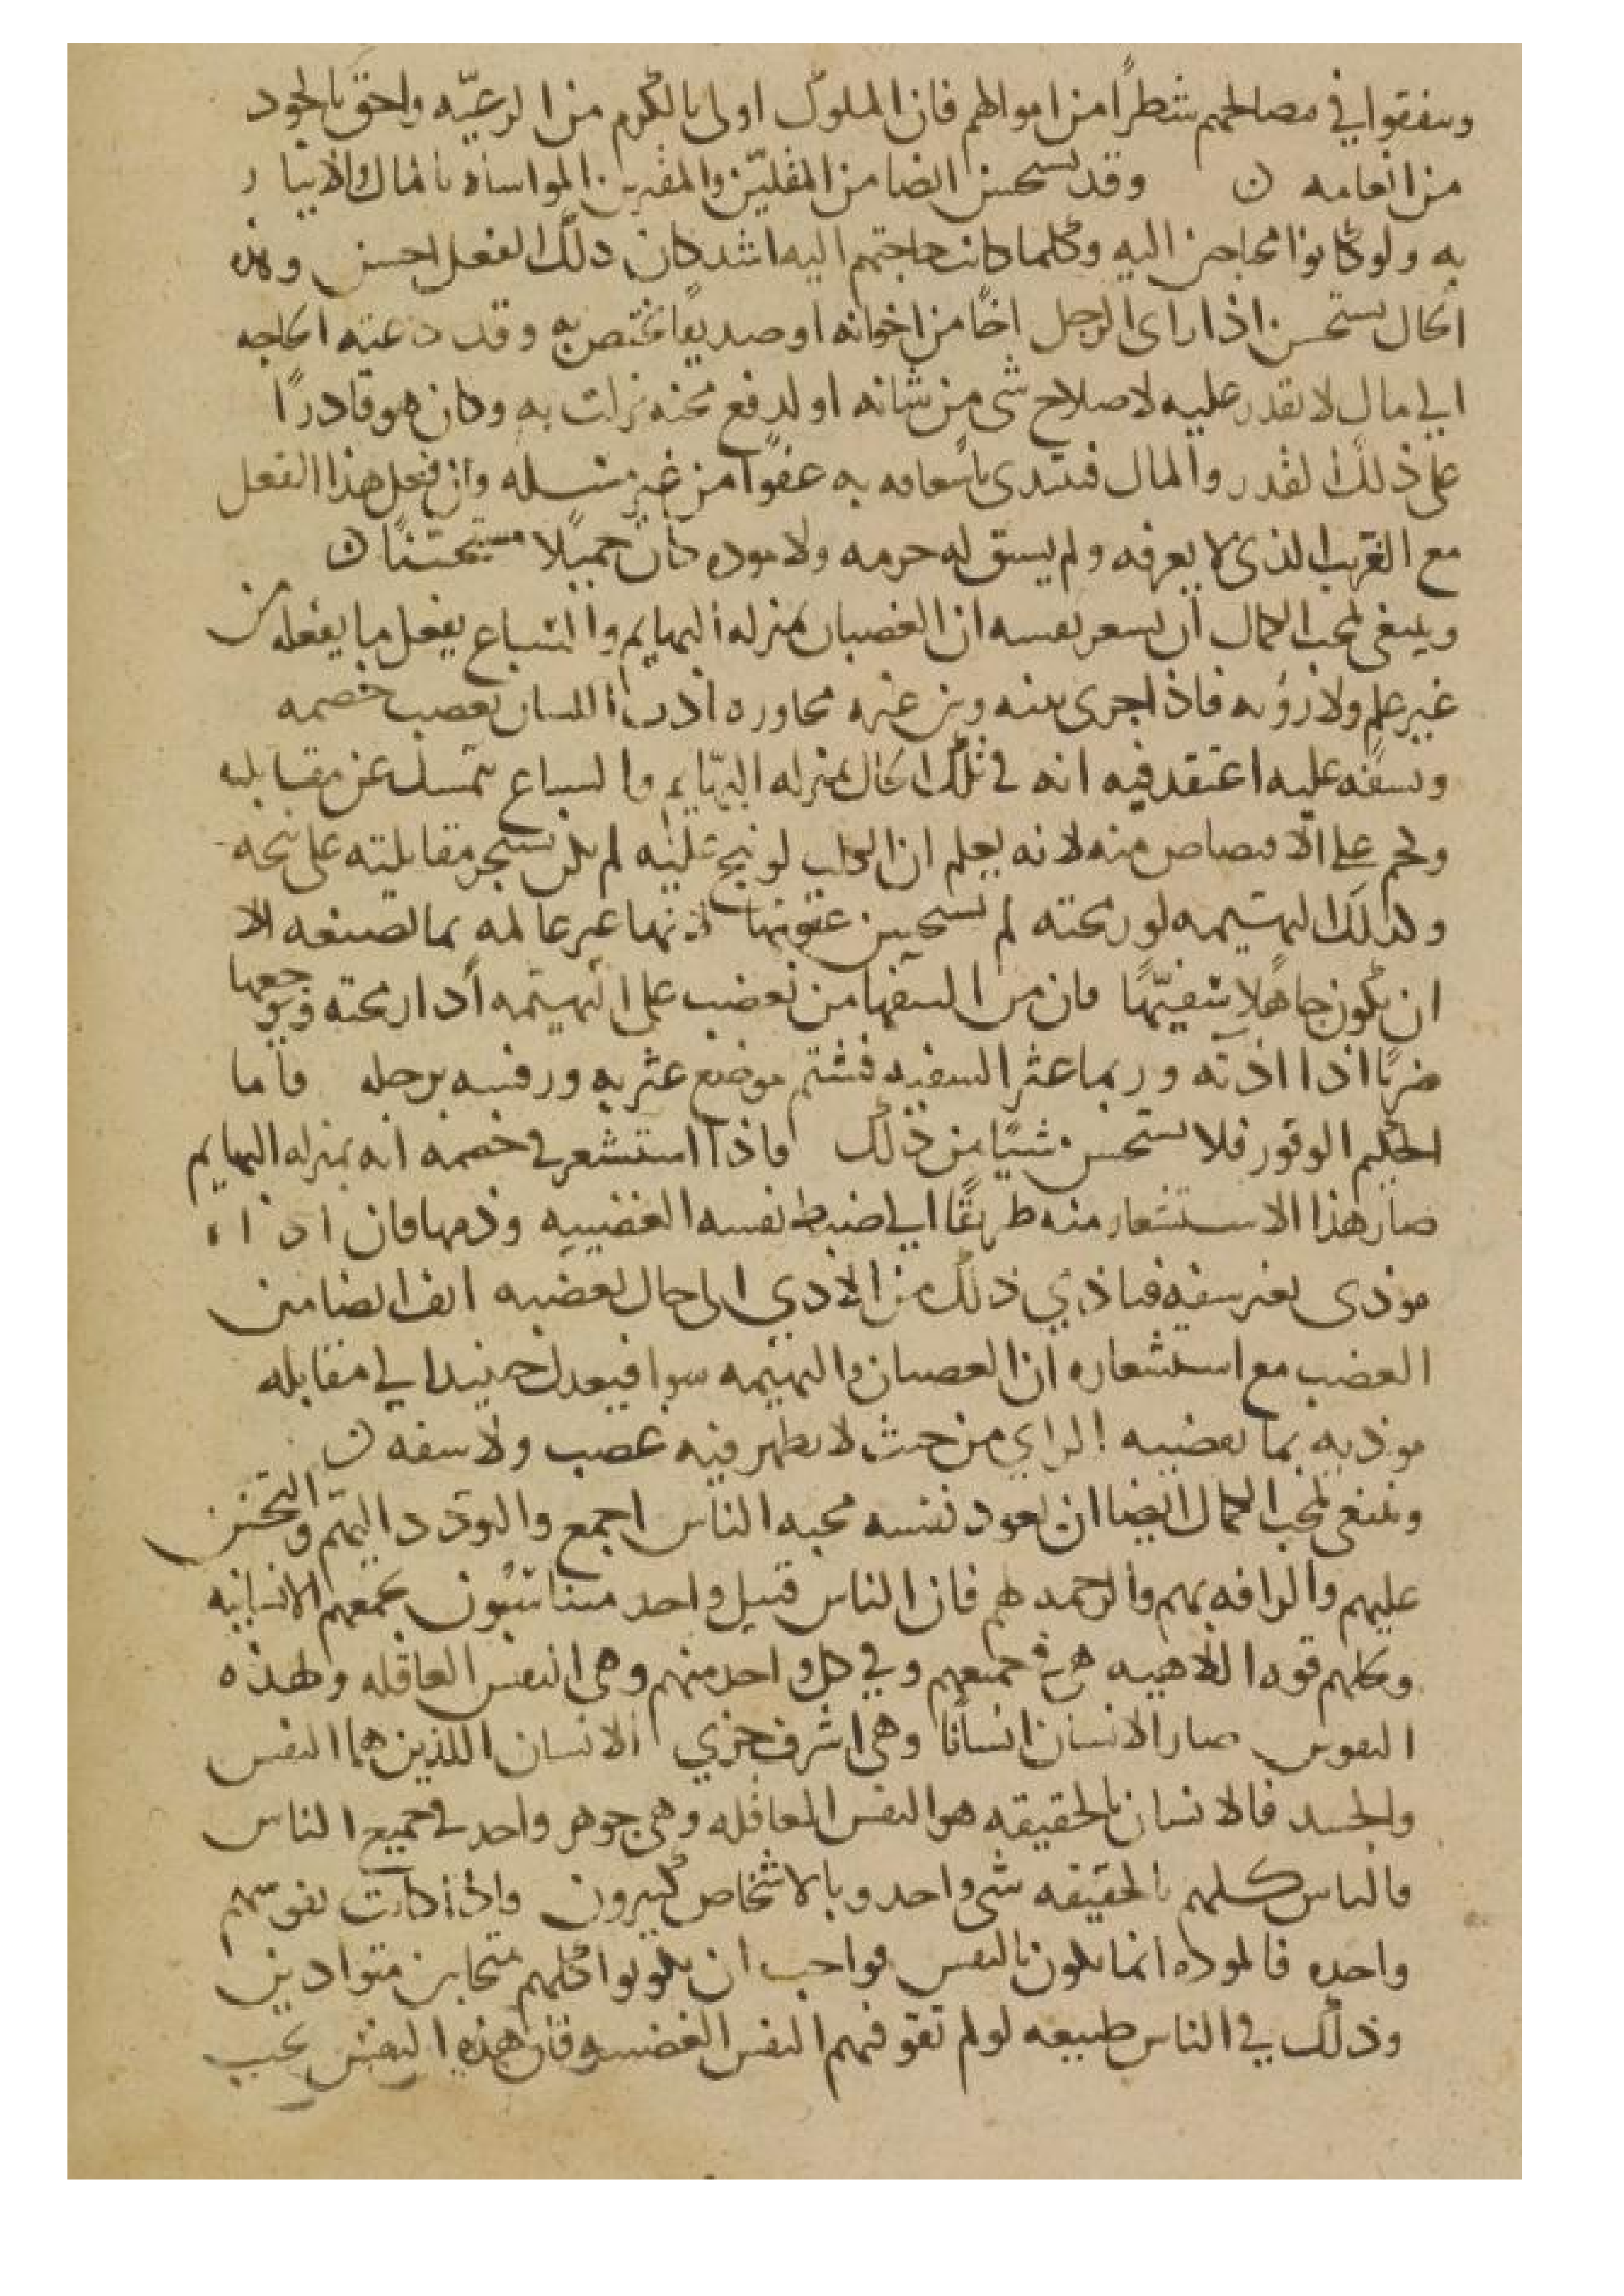 وينفقوا في مصالحهم شطرًا من اموالهم فان الملوك اولى بالكرم من الرعيّه واحق بالجود
من انعامه ن وقد يستحسن ايضا من المقلّين والمقترين المواساه بالمال والايثار
به ولو كانوا محتاجين اليه وكلما كانت حاجتهم اليه اشد كان ذلك الفعل احسن وهذه
الحال تستحسن اذا راى الرجل اخًا من اخوانه او صديقًا يختص به وقد دعته الحاجه
الى مال لا يقدر عليه لاصلاح شي من شانه او لدفع محنه نزلت به وكان هو قادرًا
على ذلك القدر والمال فيبتدي باسعافه به عفوًا من غير مسله وان فعل هذا الفعل
مع الغريب الذي لا يعرفه ولم يسبق له حرمه ولا موده كان جميلًا مستحسنًا ن
وينبغي لمحب الكمال أن يشعر نفسه ان الغضبان بمنزله البهايم والسباع يفعل ما يفعله من
غير علم ولا رويه فاذا جرى بينه وبين غيره محاوره ادت الى ان يغضب خصمه
ويسفه عليه اعتقد فيه انه في تلك الحال بمنزله البهايم والسباع يمسك عن مقابلته
على الاقتصاص منه لانه يعلم ان الكلب لو نبح عليه لم يكن يستجيز مقابلته على نبحه
وكذلك البهيمه لو رمحته لم يستحسن عقوبتها لانها غير عالمه بما تصنعه الا
ان يكون جاهلًا سفيهًا فان من السفها من يغضب على البهيمه اذا رمحته ويوجعها
ضربًا اذا اذته وربما عثر السفيه فشتم موضع عثر به ورفسه برجله فاما
الحليم الوقور فلا يستحسن شيًا من ذلك فاذا استشعر في خصمه انه بمنزله البهايم
صار هذا الاستشعار منه طريقًا الى ضبط نفسه الغضبيه وذمها فان اذاه
موذي بغير سفه فتاذي ذلك من الاذي الى حال تغضبه انف ايضا من
الغضب مع استشعاره ان الغضبان والبهيمه سوا فيعدل حينيذ الى مقابله
موذيه بما يقتضيه الراي من حيث لا يظهر فيه غضب ولا سفه ن
وينبغي لمحب الكمال ايضا ان يعود نفسه محبه الناس اجمع والتودد اليهم والتحنن
عليهم والرافه بهم والرحمه لهم فان الناس قبيل واحد متناسبون تجمعهم الانسانيه
وحلتهم قوه الاهيه هي في جميعهم وفي كل واحد منهم وهي النفس العاقله وبهذه
النفوس صار الانسان انسانًا وهي اشرف جزي الانسان اللذين هما النفس
والجسد فالانسان بالحقيقه هو النفس العاقله وهي جوهر واحد في جميع الناس
فالناس كلهم بالحقيقه شي واحد وبالاشخاص كثيرون واذ كانت نفوسهم
واحده فالموده انما تكون بالنفس فواجب ان يكونوا كلهم متحابين متوادين
وذلك في الناس طبيعه لو لم تقو فيهم النفس الغضبيه فان هذه النفس تحبب